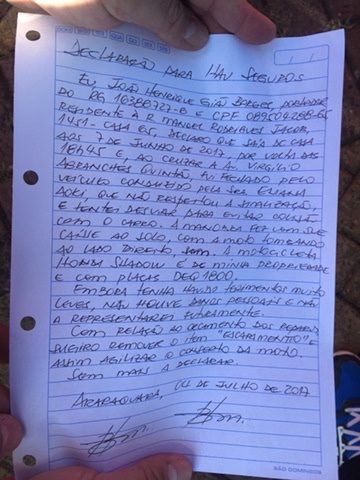 DECLARAÇÃO PARA HAU SEGUROS
EU JOÃO HENRIQUE GIÃO BORGES, PORTADOR
DO RG 16388727-8 E CPF
RESIDENTE À R MANOEL RODRIGUES JACOB,
1451 - CASA 85, DECLARO QUE SAÍA DE CASA
AOS 7 JUNHO DE 2017, POR VOLTA DAS
16H45 E, AO CRUZAR A AV. VIRGILIO
ABRANCHES QUINTÃO, FUI FECHADO PELO
VEÍCULO CONDUZIDO PELA SRA ELIANA
AOKI, QUE NÃO RESPEITOU A SINALIZAÇÃO,
E TENTEI DESVIAR PARA EVITAR COLISÃO
COM O CARRO. A MANOBRA FEZ COM QUE
CAÍSSE AO SOLO, COM A MOTO TOMBANDO
AO LADO DIREITO. A MOTOCICLETA
HONDA SHADOW É DE MINHA PROPRIEDADE
E COM PLACAS DEQ 1800.
EMBORA TENHA HAVIDO FERIMENTOS MUITO
LEVES, NÃO HOUVE DANOS PESSOAIS E NÃO
A REPRESENTAREI FUTURAMENTE.
COM RELAÇÃO AO ORÇAMENTO DOS REPAROS,
SUGIRO REMOVER O ITEM "ESCAPAMENTO" E
ASSIM AGILIZAR O CONSERTO DA MOTO.
SEM MAIS A DECLARAR.
ARARAQUARA, 04 DE JULHO DE 2017
SÃO DOMINGOS